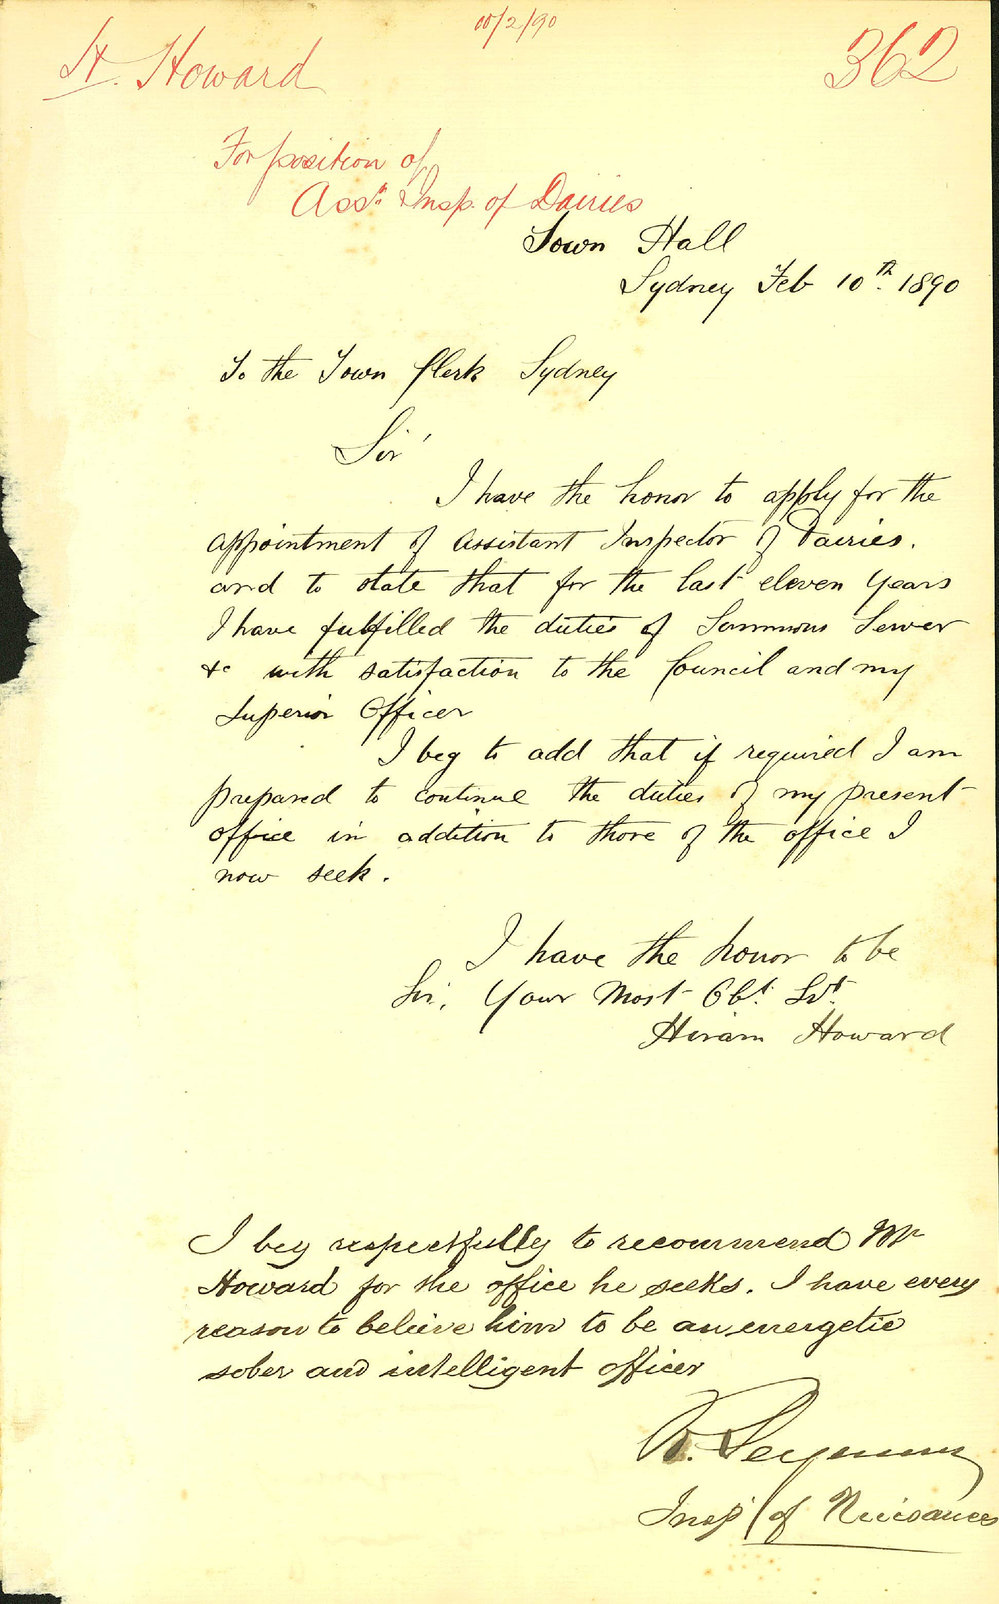 10/2/90
H. Howard
362
For position of
Asst. Insp. of Dairies
Town Hall
Sydney Feb 10th. 1890
To the Town Clerk Sydney
Sir'
I have the honor to apply for the
appointment of Assistant Inspector of Dairies.
and to state that for the last eleven years
I have fulfilled the duties of Summons Server
&c with satisfaction to the Council and my
Superior Officer
I beg to add that if required I am
prepared to continue the duties of my present
office in addition to those of the office I
now seek.
I have the honor to be
Sir, Your Most Obt. Svt.
Hiram Howard
I beg respectfully to recommend Mr
Howard for the office he seeks. I have every
reason to believe him to be an energetic
sober and intelligent officer
R. Seymour
Insp of Nuisances